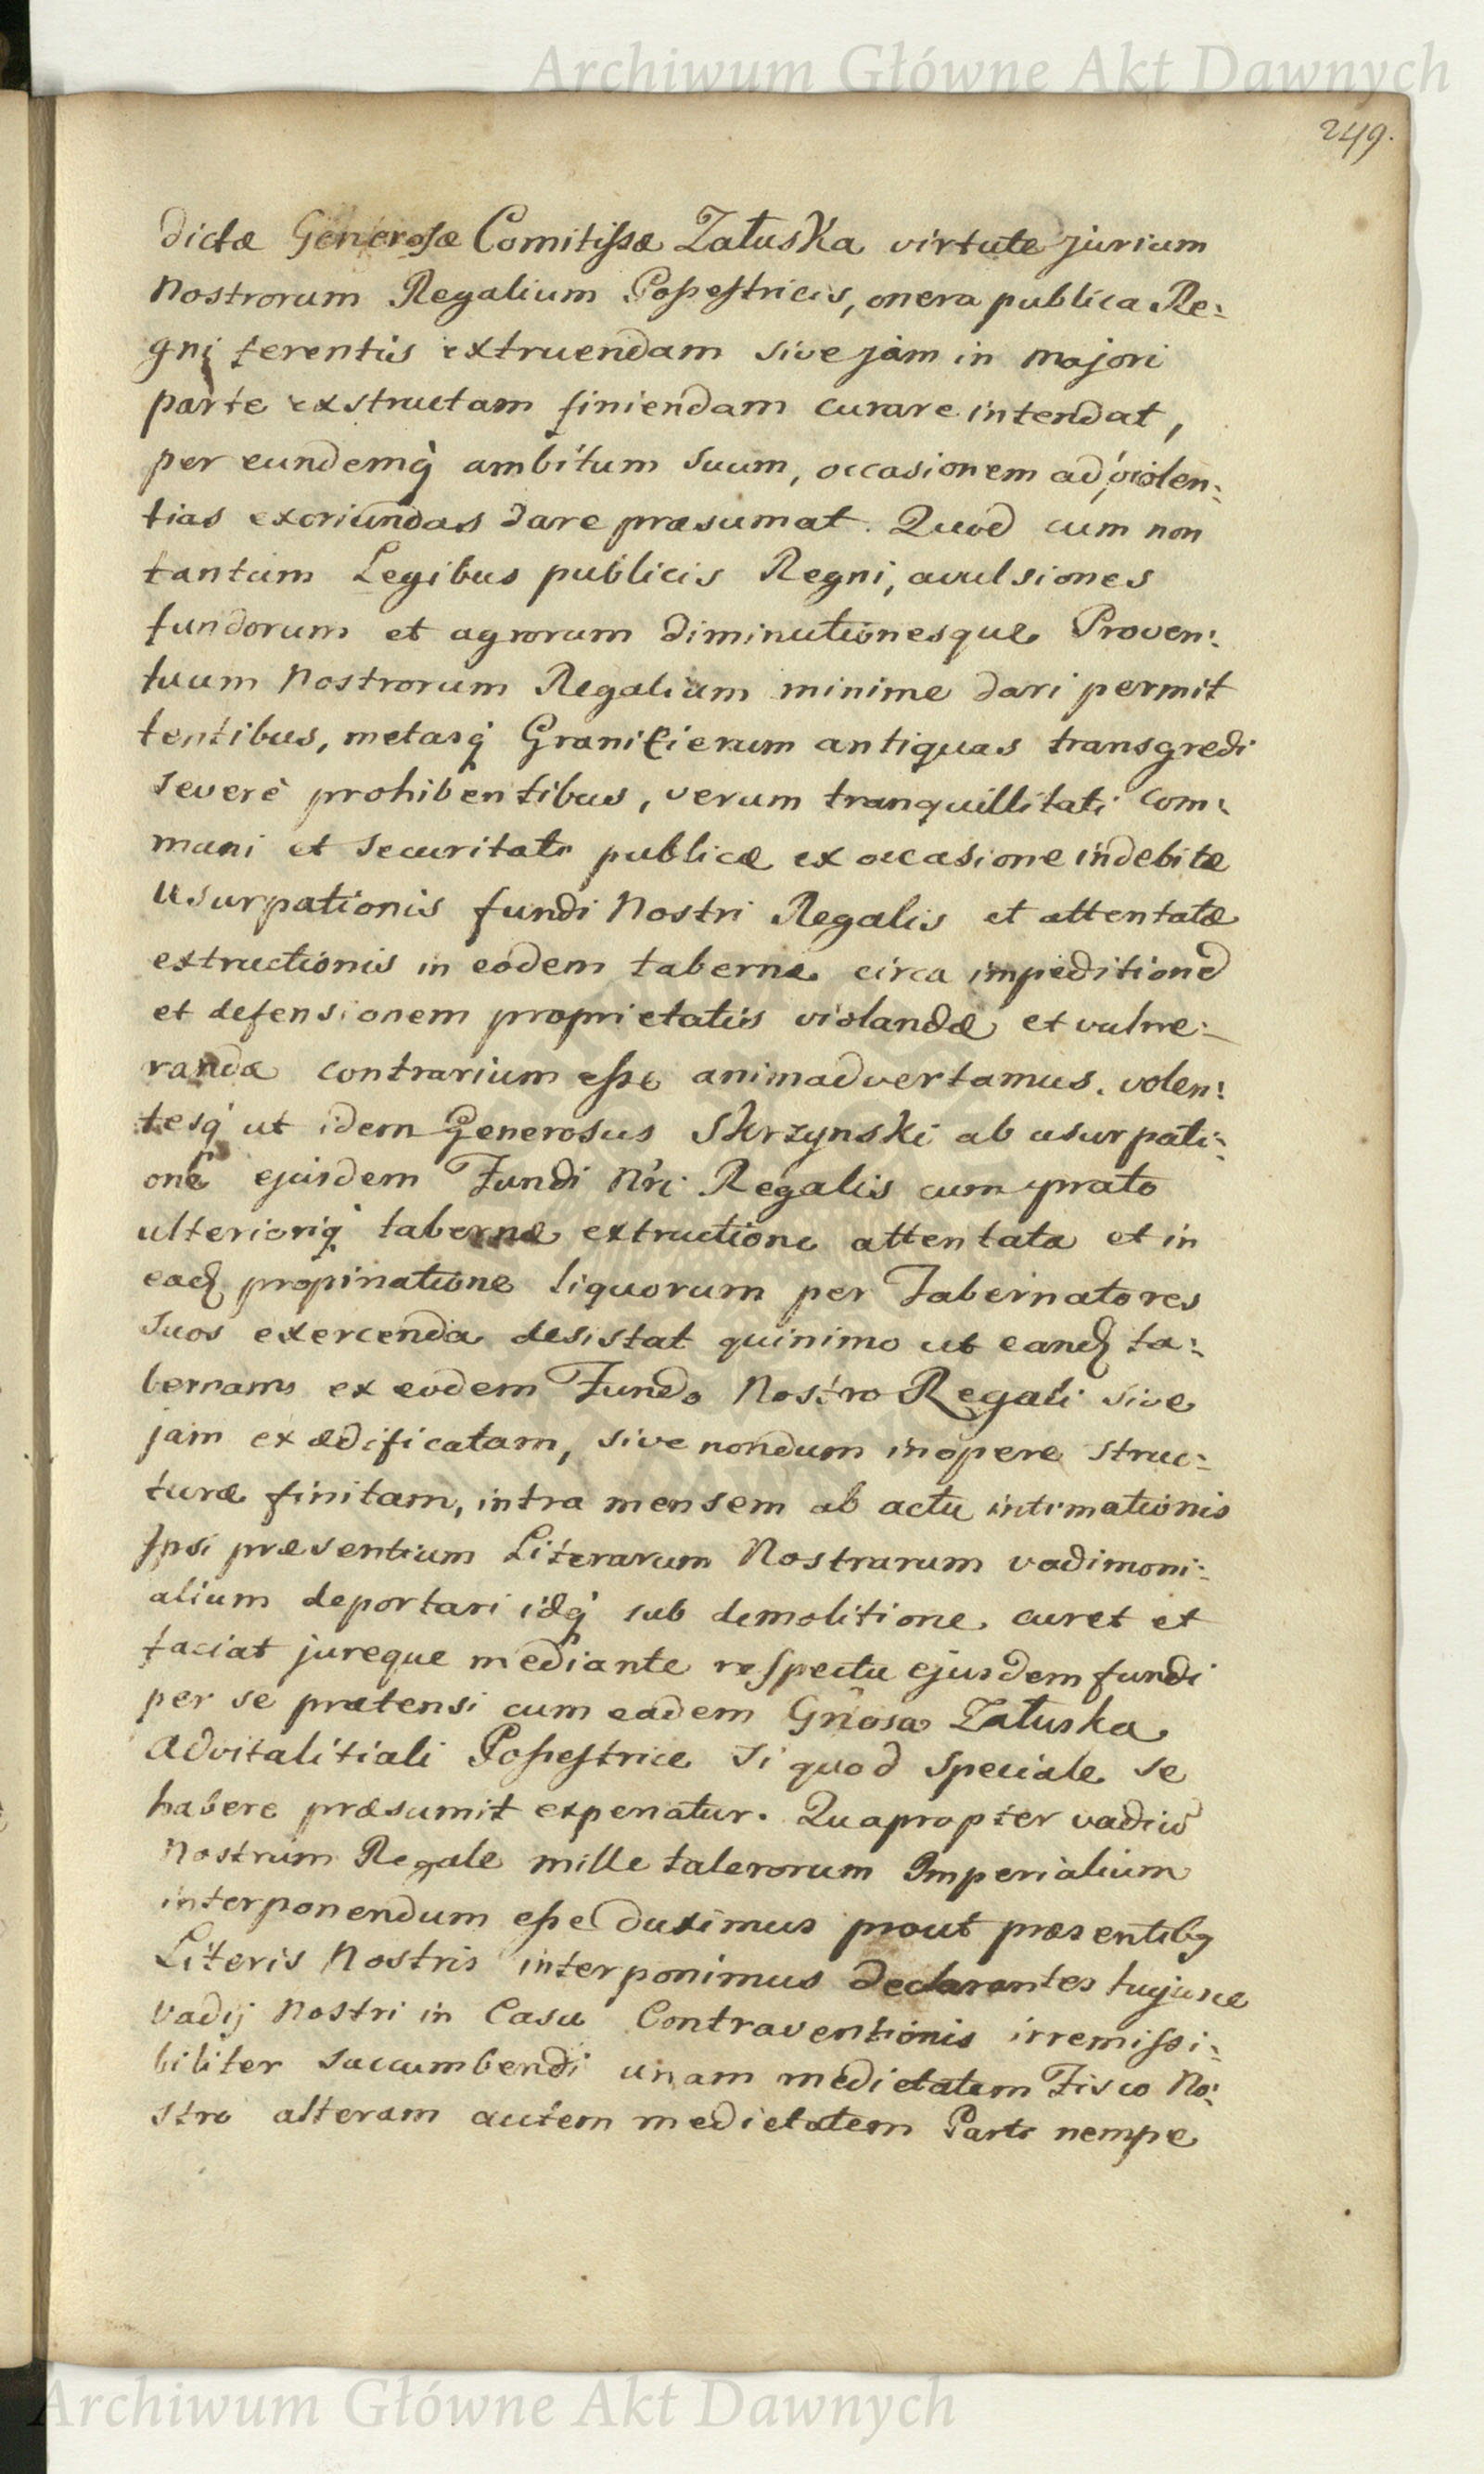 Archiwum Główne Akt Dawnych
249.
dictæ Generosæ Comitissæ Załuska virtute jurium
Nostrorum Regalium Possestricis, onera publica Re:
gni ferentis extruendam sive jam in majori
parte exstructam finiendam curare intendat,
per eundemq́ ambitum suum, occasionem ad violen:
tias exoriundas dare præsumat. Quod cum non
tantum Legibus publicis Regni, avulsiones
fundorum et agrorum diminutionesque Proven:
tuum Nostrorum Regalium minime dari permit
tentibus, metasq́ Granicierum antiquas transgredi
severè prohibentibus, verum tranquillitati com:
muni et securitati publicæ ex occasione indebitæ
usurpationis fundi Nostri Regalis et attentatæ
extructionis in eodem tabernæ circa impeditionē
et defensionem proprietatis violandæ et vulne:
randæ contrarium esse animadvertamus. volen:
tesq́ ut idem Generosus Skrzynski ab usurpati:
onē ejusdem Fundi Nr̃i Regalis cum prato
ulterioriq́ tabernæ extructione attentata et in
eadȩ propinatione liquorum per Tabernatores
suos exercenda desistat quinimo ut eandȩ ta:
bernam ex eodem Fundo Nostro Regali sive
jam exædificatam, sive nondum in opere struc:
turæ finitam, intra mensem ab actu intimationis
Ipsi præsentium Literarum Nostrarum vadimoni:
alium deportari idq́ sub demolitione curet et
faciat jureque mediante respectu ejusdem fundi
per se prætensi cum eadem Gñosa Załuska
Advitalitiali Possestrice si quod speciale se
habere præsumit experiatur. Quapropter vadiū
Nostrum Regale mille talerorum Imperialium
interponendum esse duximus prout præsentibꝯ
Literis Nostris interponimus declarantes hujusce
Vadij Nostri in Casu Contraventionis irremissi:
biliter succumbendi unam medietatem Fisco No:
stro alteram autem medietatem Parti nempe
Archiwum Główne Akt Dawnych